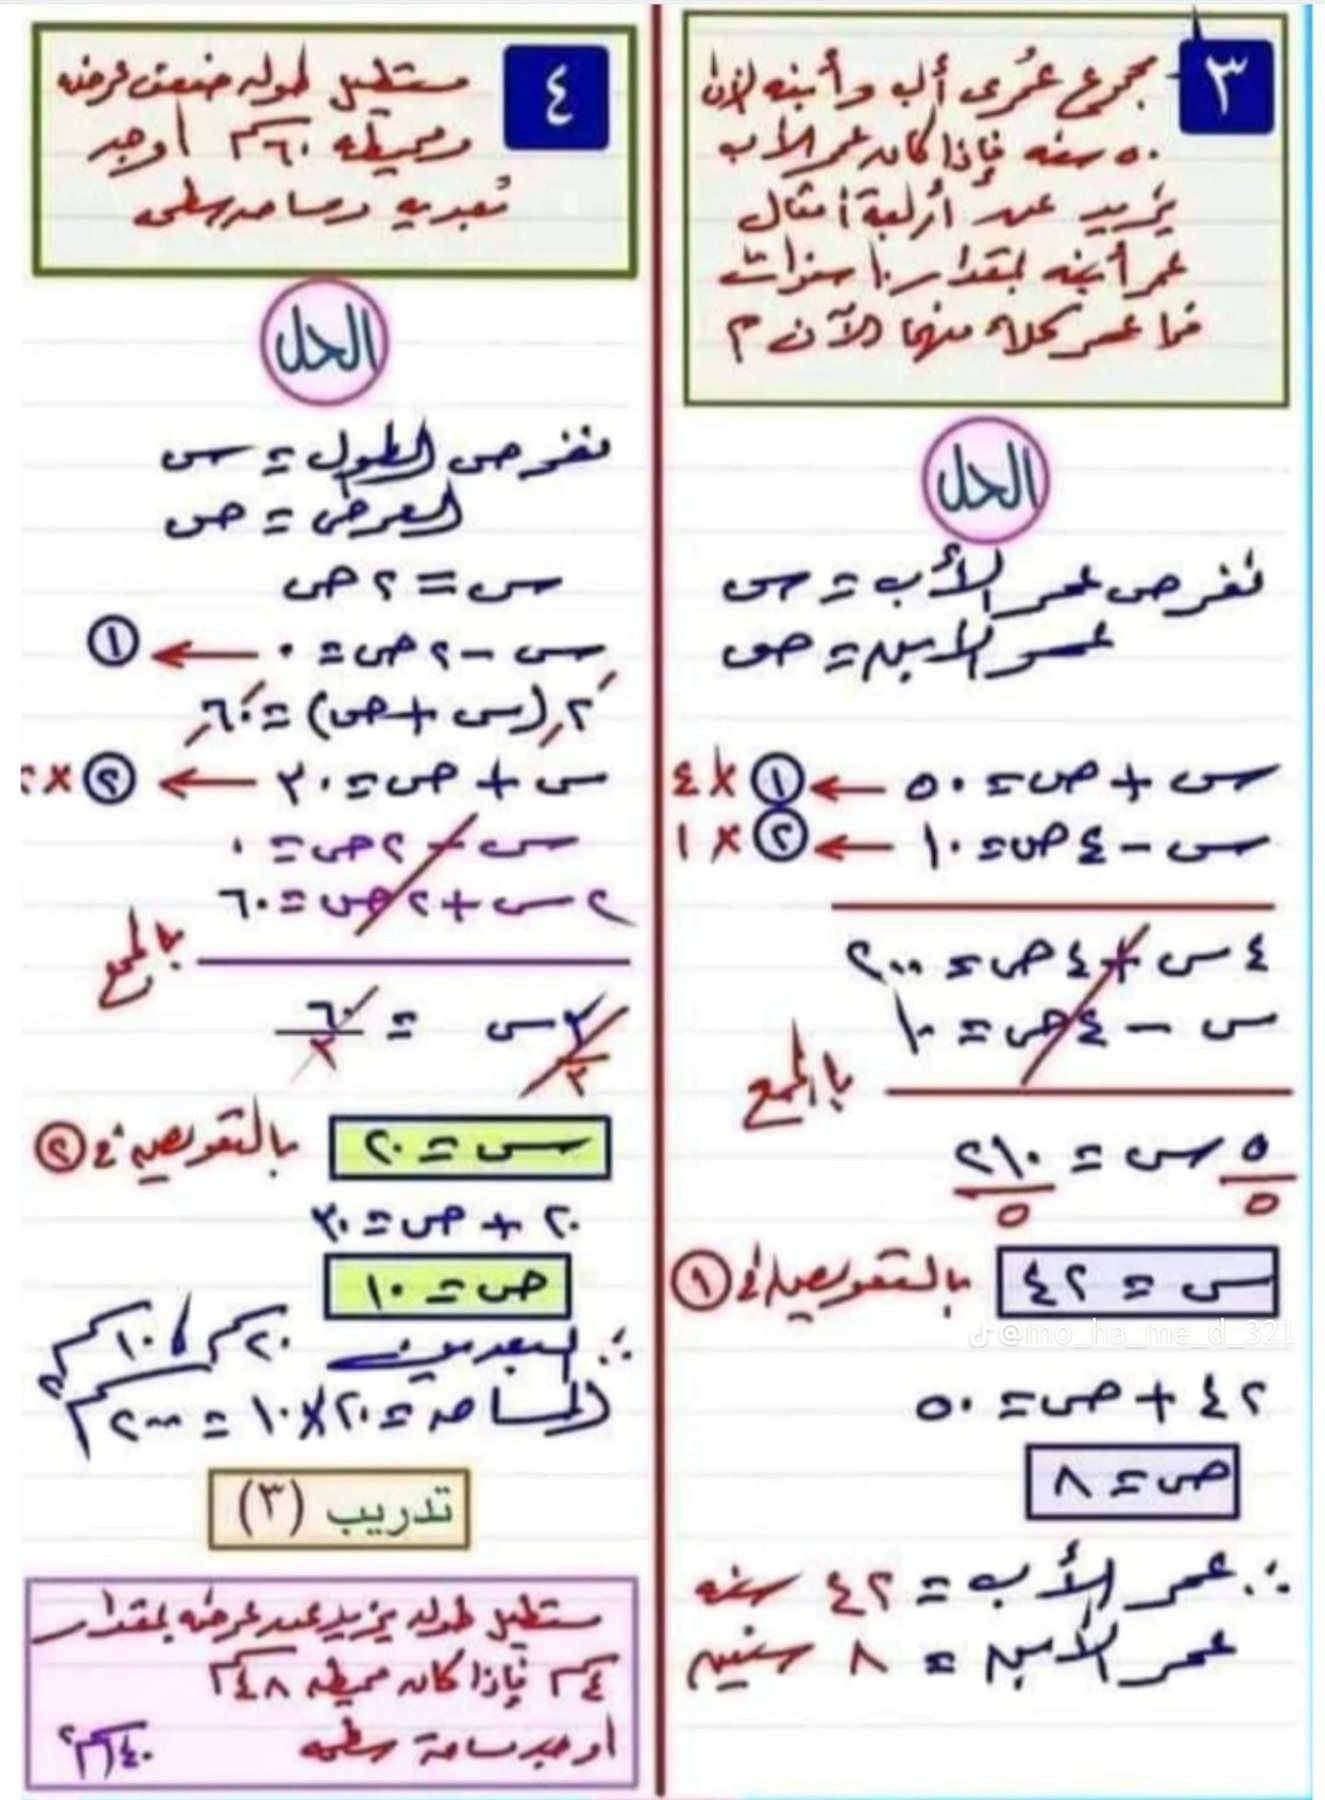 ٣
مجموع عمرى أب وأبنه الآن
٥٠ سنه فإذا كان عمر الأب
يزيد عن أربعة أمثال
عمر أبنه بمقدار ١٠ سنوات
فما عمر كلاً منهما الآن ؟
الحل
نفرض عمر الأب = س
عمر الابن = ص
س + ص = ٥٠ ← ① × ٤
س - ٤ص = ١٠ ← ② × ١
٤س + ٤ص = ٢٠٠
س - ٤ص = ١٠
بالجمع
٥س = ٢١٠
٥ ٥
س = ٤٢ بالتعويض في ①
@mo_ha_me_d_321
٤٢ + ص = ٥٠
ص = ٨
∴ عمر الأب = ٤٢ سنه
عمر الأبن = ٨ سنين
٤
مستطيل طوله ضعف عرضه
ومحيطه ٦٠سم أوجد
بُعديه ومساحه سطحه
الحل
نفرض الطول = س
العرض = ص
س = ٢ص
س - ٢ص = ٠ ← ①
٢(س + ص) = ٦٠
س + ص = ٣٠ ← ② × ٢
س - ٢ص = ٠
٢س + ٢ص = ٦٠
بالجمع
٣س = ٦٠
٣ ٣
س = ٢٠ بالتعويض في ②
٢٠ + ص = ٣٠
ص = ١٠
∴ البعدين ٢٠سم ، ١٠سم
المساحه = ٢٠ × ١٠ = ٢٠٠سم٢
تدريب (٣)
مستطيل طوله يزيد عن عرضه بمقدار
٤سم فإذا كان محيطه ٤٨سم
أوجد مساحة سطحه
١٤٠سم٢